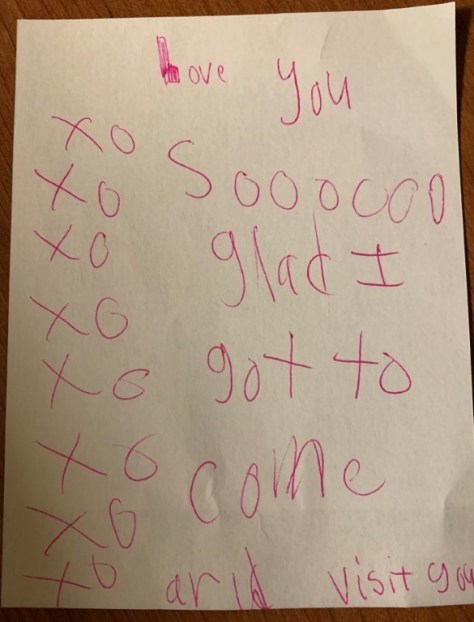 Love you
XO
XO Soooooo
XO glad I
XO
XO got to
XO come
XO
XO and visit you